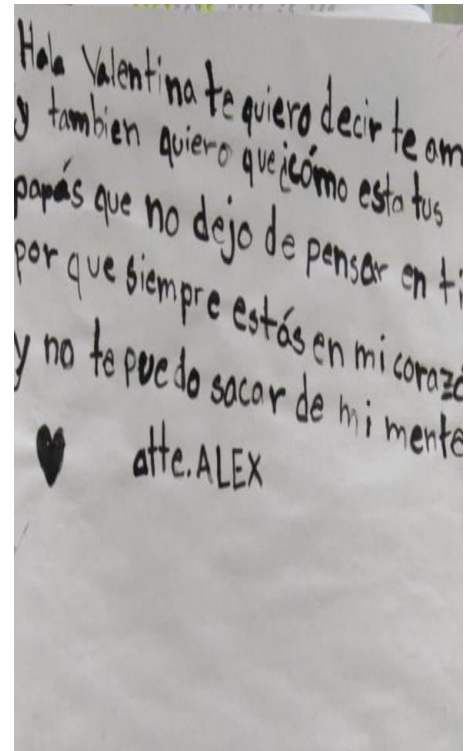 Hola Valentina te quiero decir te am
y tambien quiero que ¿cómo esta tus
papás que no dejo de pensar en ti
por que siempre estás en mi corazó
y no te puedo sacar de mi mente
♥ atte. ALEX